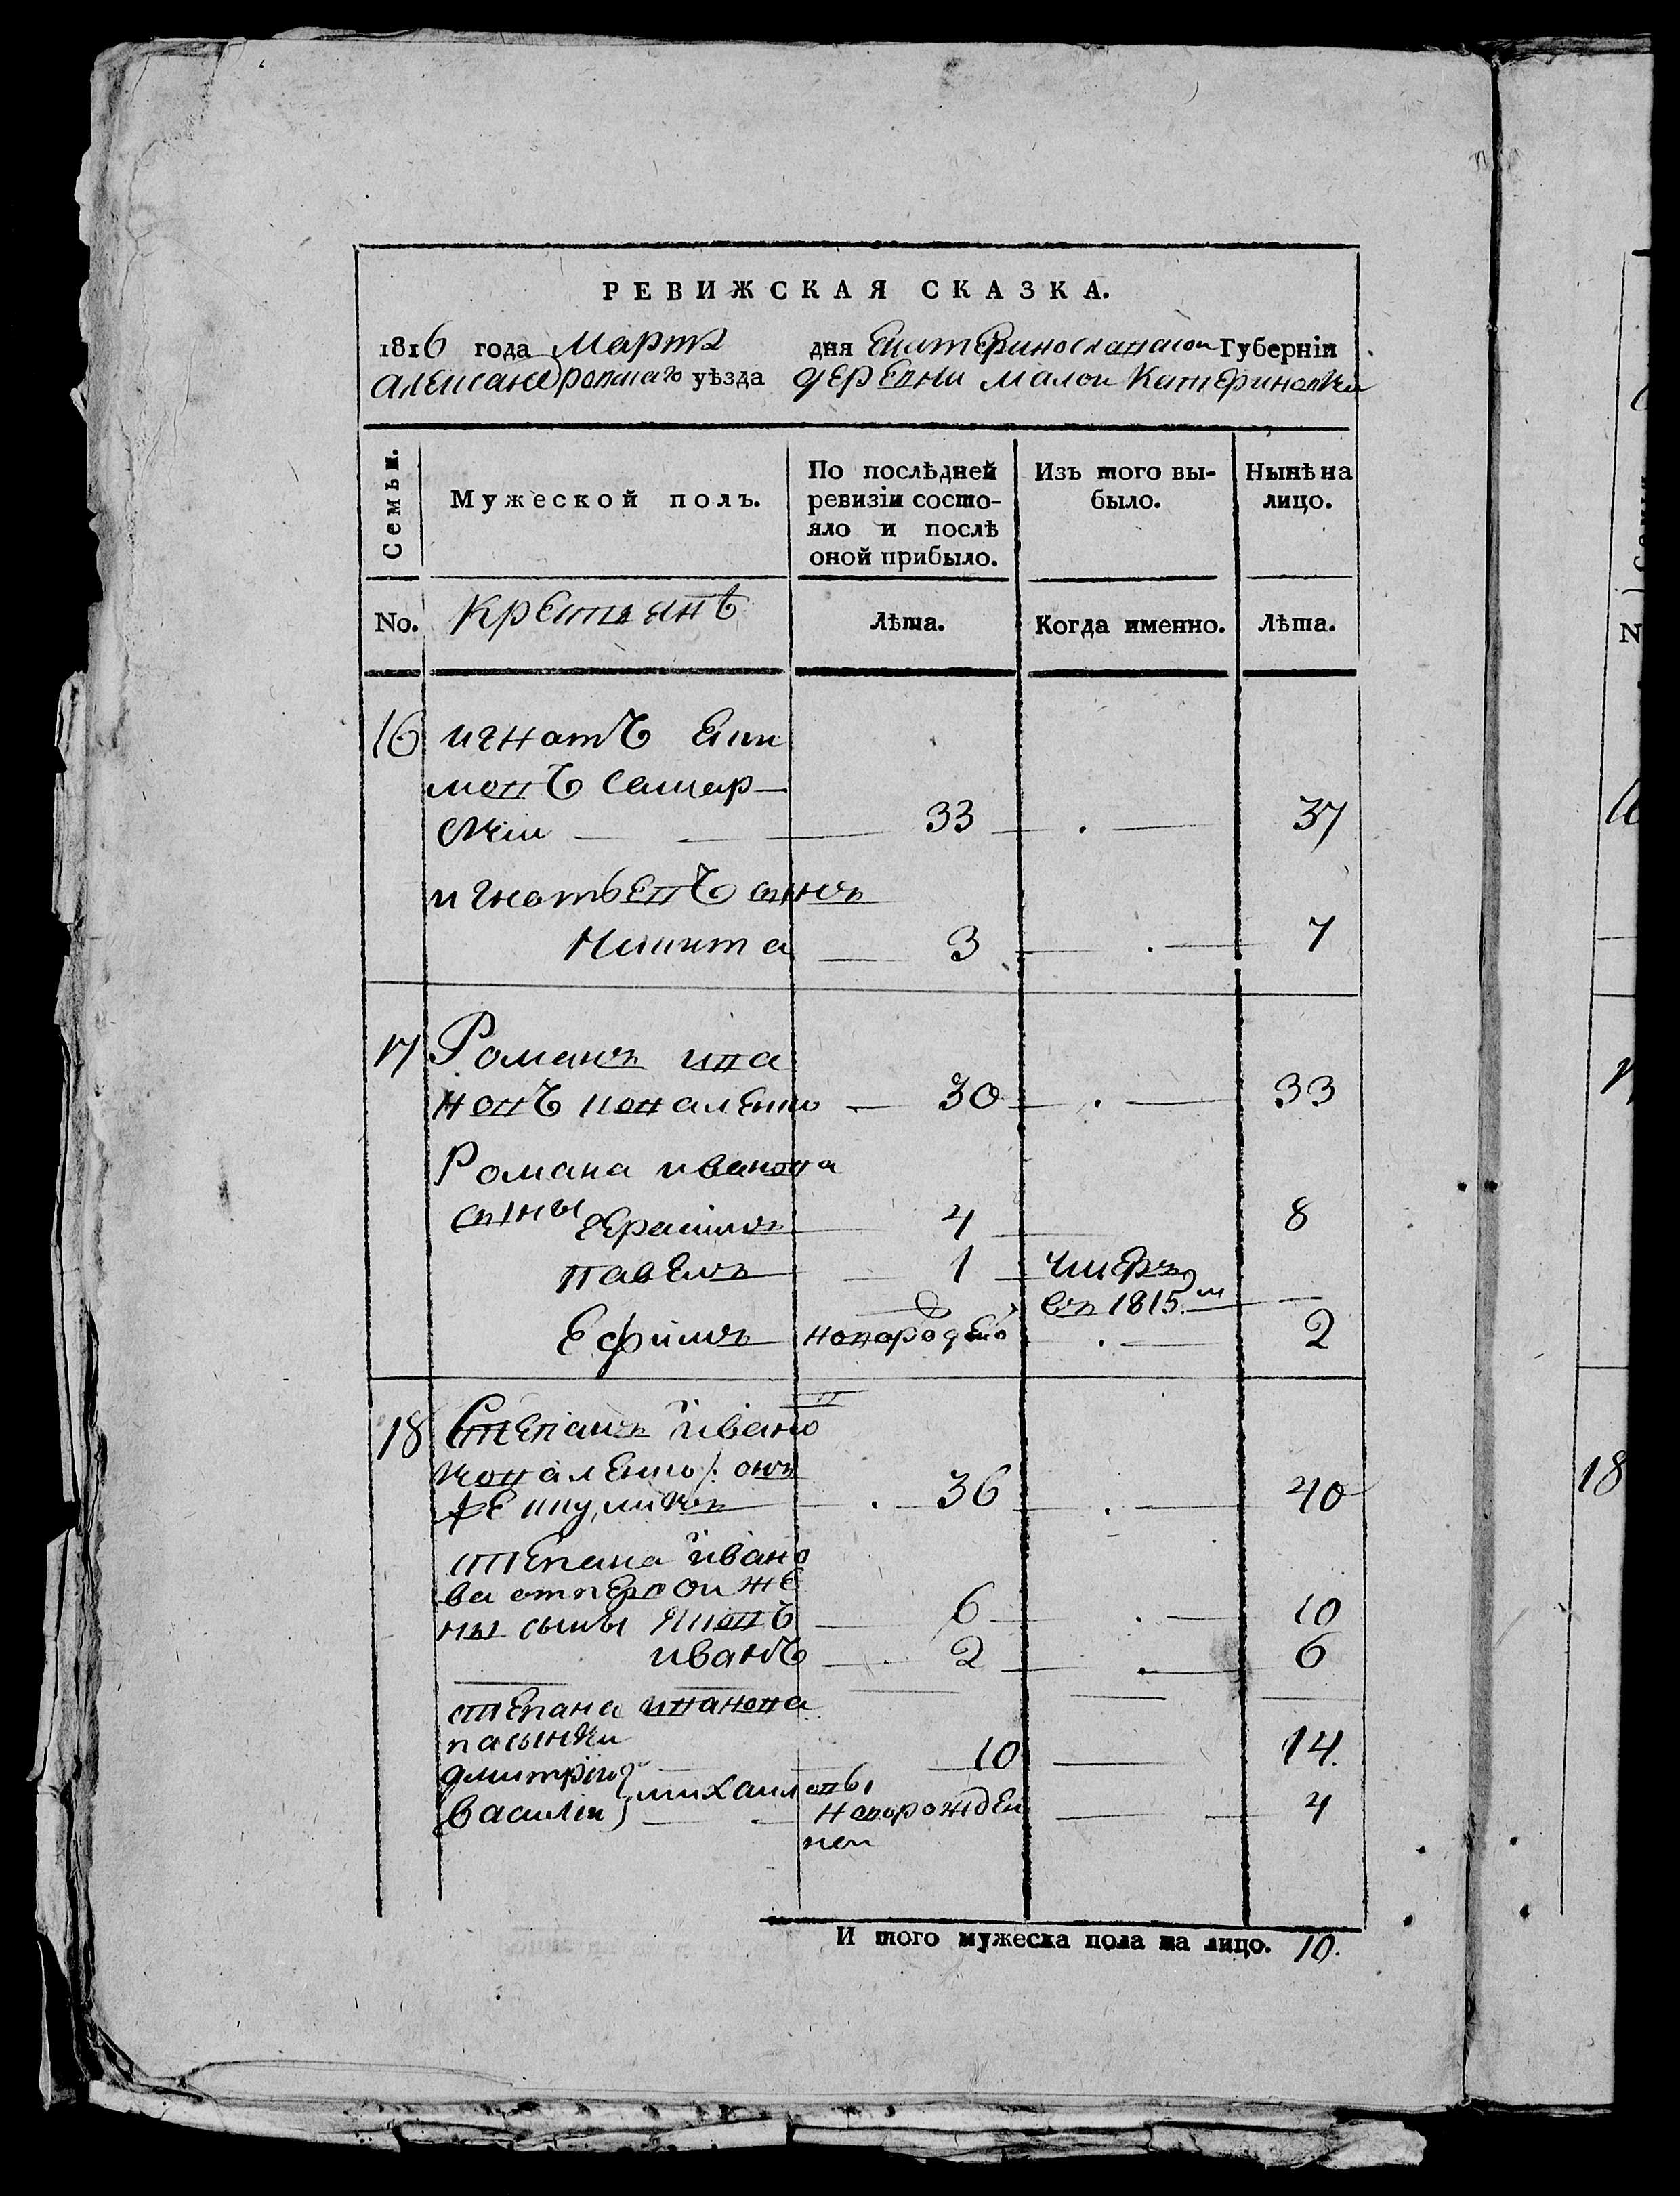 РЕВИЖСКАЯ СКАЗКА.
1816 года Марта дня Екатеринославской Губерніи
александровскаго уѣзда деревни малой Катериновки
Семьи. Мужеской полъ. По послѣдней ревизіи состояло и послѣ оной прибыло. Изъ того выбыло. Нынѣ на лицо.
No. крестьянъ Лѣта. Когда именно. Лѣта.
16 игнатъ
мовъ
скій 33 37
игнатьевъ сынъ
никита 3 7
17 Романъ ива
новъ коваленко 30 33
Романа иванова
сыны герасимъ 4 8
павелъ 1 умеръ
въ 1815м
Ефимъ новорожде 2
18 Степанъ ивано
в
коваленко онъ
же 36 40
степана ивано
ва отпервой же
ны сыны яковъ 6 10
иванъ 2 6
степана иванова
пасынки
дмитрій 10 14.
василій михаиловы новорожден 4
ной
И того мужеска пола на лицо. 10.
Семьи
N
16
17
18